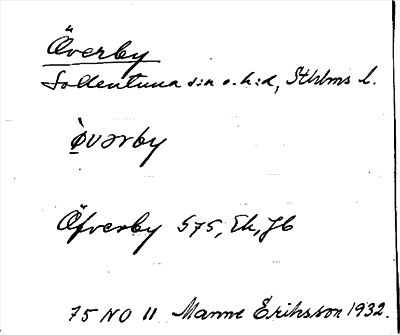 Överby
Sollentuna s:n o. h:d, Sthlms l.
ø̀vərby
Öfverby 575, Ek, Jb
75 NO 11 Manne Eriksson 1932.